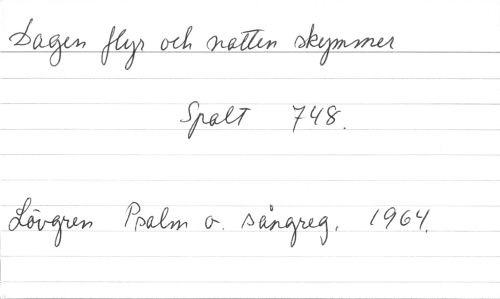 Dagen flyr och natten skymmer
Spalt 748.
Lövgren Psalm o. sångreg. 1964.